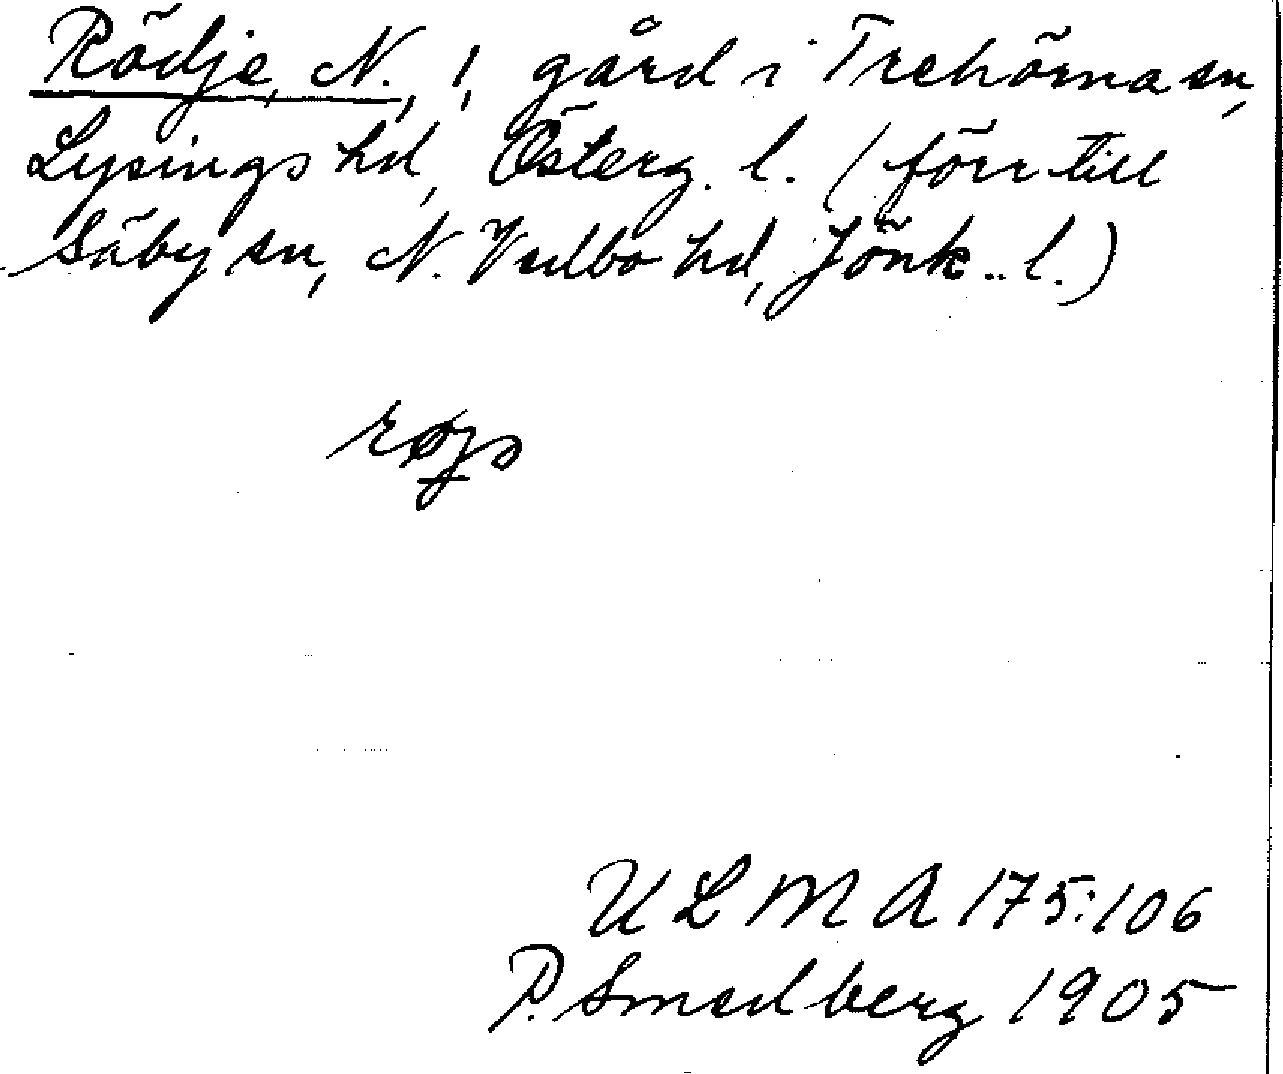 Rödje, N., 1, gård i Trehörna sn,
Lysings hd, Österg. l. (förr till
Säby sn, N. Vedbo hd, Jönk. l.)
U L M A 175:106
P. Smedberg 1905